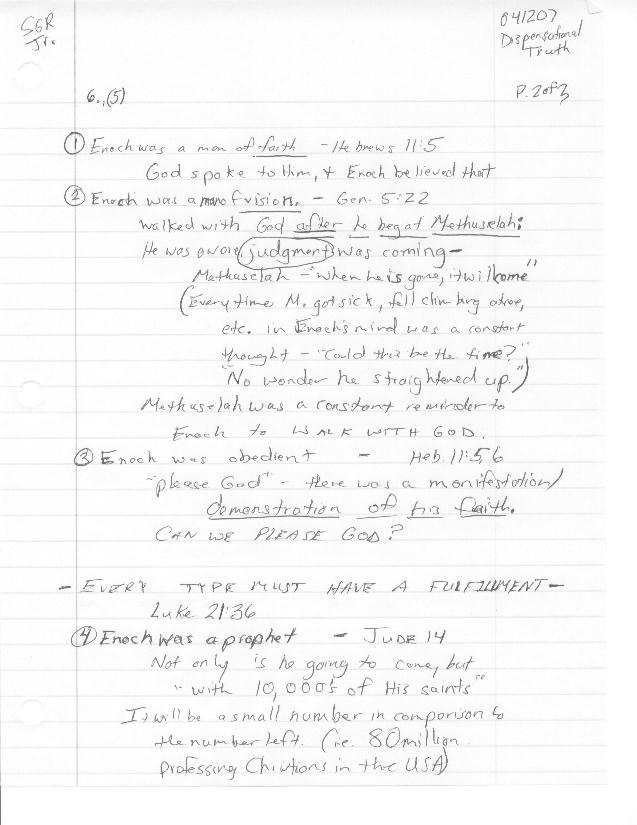 SGR
Jr.
041207
Dispensational
Truth
6.,(5)
P. 2 of 3
① Enoch was a man of faith - Hebrews 11:5
God spoke to him, & Enoch believed that
② Enoch was a man of vision. - Gen. 5:22
walked with God after he begat Methuselah:
He was aware judgment was coming-
Methuselah - "When he is gone, it will come"
(Every time M. got sick, fell climbing a tree,
etc. in Enoch's mind was a constant
thought - "Could this be the time?"
"No wonder he straightened up.")
Methuselah was a constant reminder to
Enoch to WALK WITH GOD.
③ Enoch was obedient - Heb. 11:5,6
"please God" - there was a manifestation/
demonstration of his faith.
CAN WE PLEASE GOD?
- EVERY TYPE MUST HAVE A FULFILLMENT -
Luke 21:36
④ Enoch was a prophet - JUDE 14
Not only is he going to come, but
"with 10,000's of His saints"
It will be a small number in comparison to
the number left. (ie. 80 million
professing Christians in the USA)